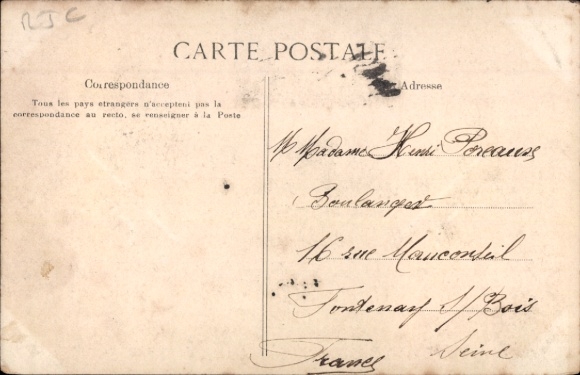 RJC
CARTE POSTALE
Correspondance
Adresse
Tous les pays étrangers n'acceptent pas la
correspondance au recto, se renseigner à la Poste
M Madame Henri
Boulanger
16 rue Mauconseil
Fontenay s/ Bois
Seine
France